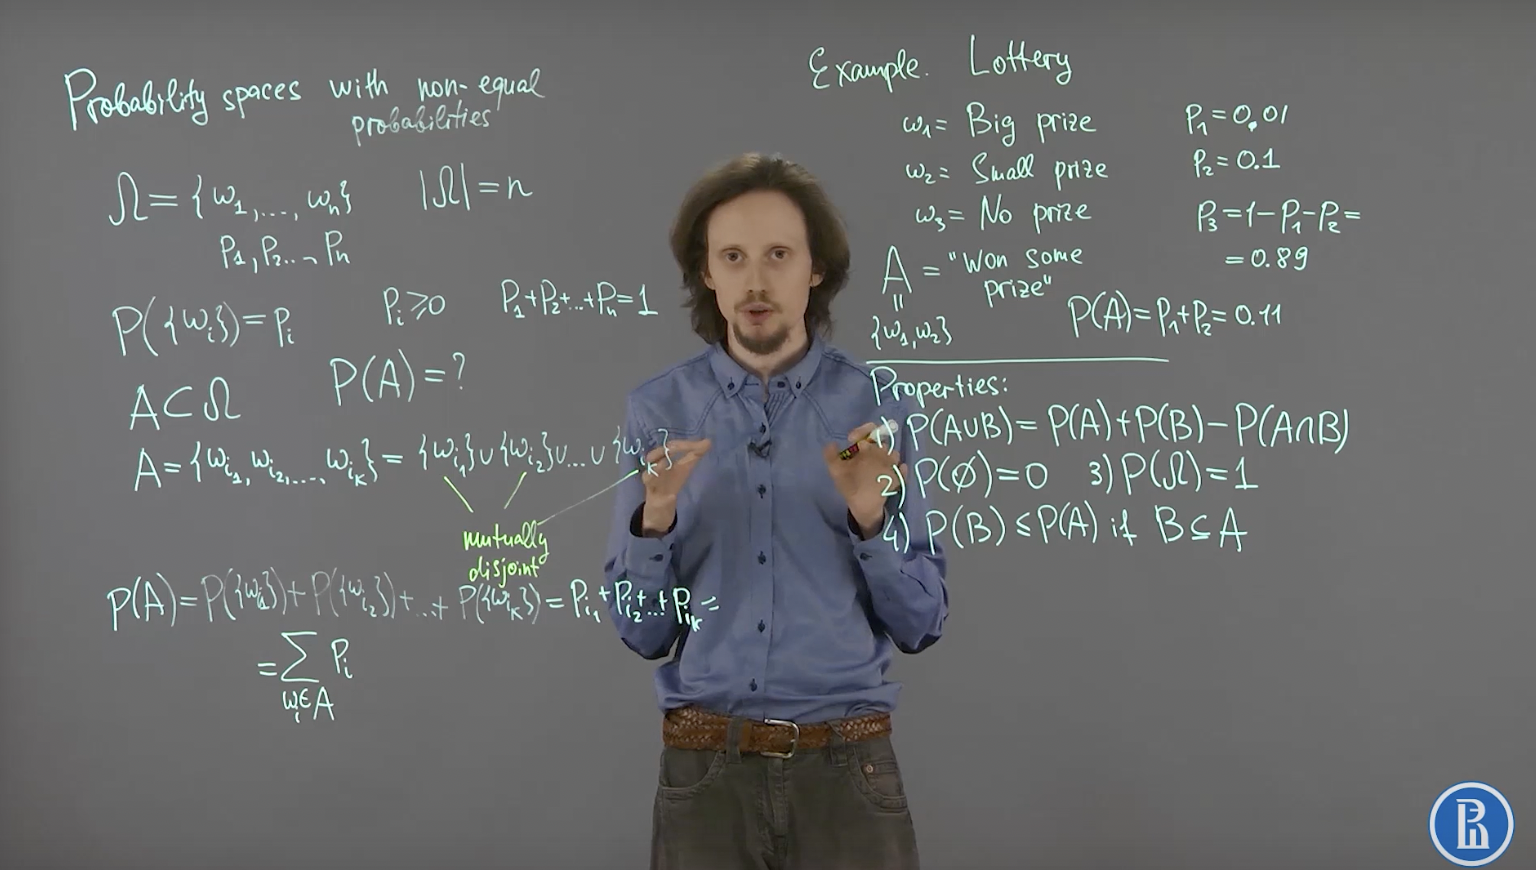 Probability spaces with non-equal
probabilities
Ω = {ω₁, ..., ωₙ} |Ω| = n
p₁, p₂ .., pₙ
P({ωᵢ}) = pᵢ pᵢ ⩾ 0 p₁+p₂+...+pₙ=1
A ⊂ Ω P(A) = ?
A = {ω_{i₁}, ω_{i₂}, ..., ω_{i_k}} = {ω_{i₁}} ∪ {ω_{i₂}} ∪ ... ∪ {ω_{i_k}}
mutually
disjoint
P(A) = P({ω_{i₁}}) + P({ω_{i₂}}) + ... + P({ω_{i_k}}) = p_{i₁} + p_{i₂} + ... + p_{i_k} =
= ∑_{ωᵢ∈A} pᵢ
Example. Lottery
ω₁ = Big prize p₁ = 0.01
ω₂ = Small prize p₂ = 0.1
ω₃ = No prize p₃ = 1-p₁-p₂ =
= 0.89
A = "Won some
prize"
=
{ω₁, ω₂} P(A) = p₁+p₂ = 0.11
Properties:
1) P(A∪B) = P(A) + P(B) - P(A∩B)
2) P(∅) = 0 3) P(Ω) = 1
4) P(B) ≤ P(A) if B ⊆ A